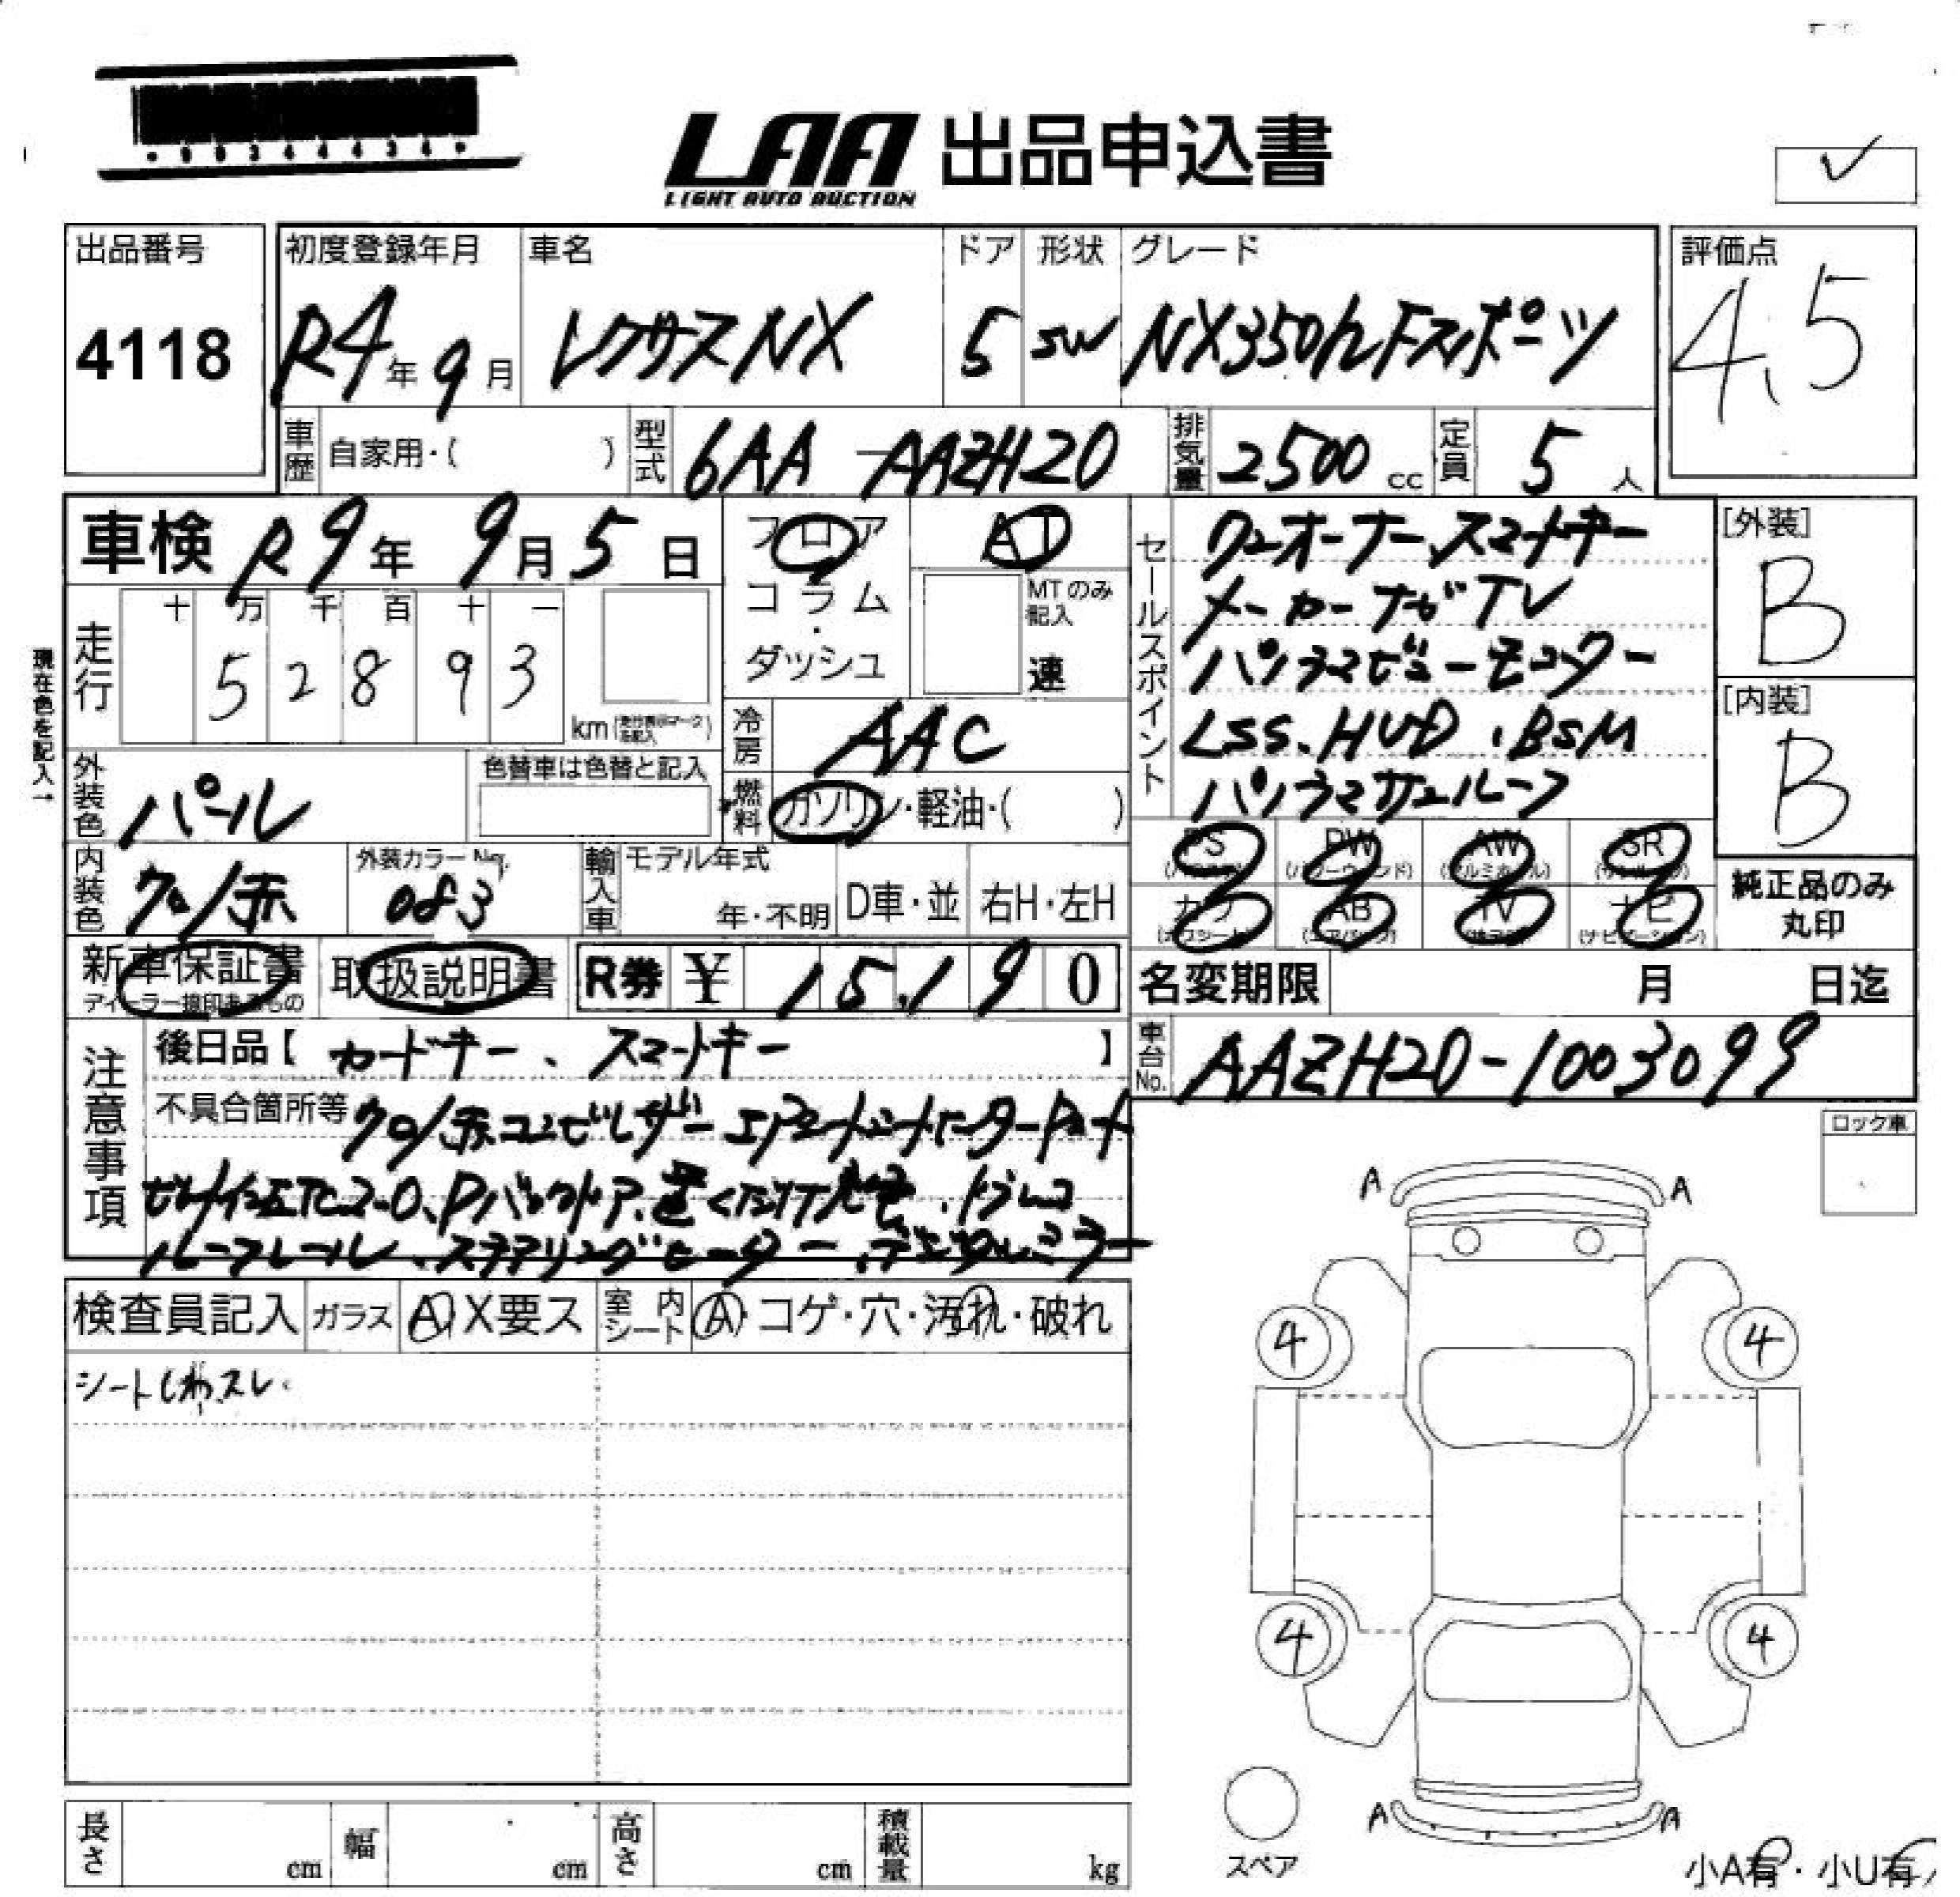 LAA 出品申込書
LIGHT AUTO AUCTION
出品番号
4118
初度登録年月
R4年9月
車名
レクサスNX
ドア
5
形状
SW
グレード
NX350h Fスポーツ
評価点
4.5
車歴 自家用・( )
型式 6AA-AAZH20
排気量 2500 cc
定員 5 人
車検 R9年9月5日
フロア
コラム
・
ダッシュ
AT
MTのみ記入
速
走行
十 万 千 百 十 一
5 2 8 9 3
km
現在色を記入→
冷房 AAC
燃料 ガソリン・軽油・( )
外装色 パール
色替車は色替と記入
内装色 クロ/赤
外装カラーNo.
083
輸入車
モデル年式
年・不明
D車・並
右H・左H
セールスポイント
ワンオーナー、スマートキー
メーカーナビTV
パノラマビューモニター
LSS、HUD、BSM
パノラマサンルーフ
[外装]
B
[内装]
B
PS PW AW SR
カワ AB TV ナビ
純正品のみ
丸印
新車保証書
ディーラー捺印あるもの
取扱説明書
R券 ¥ 15,190
名変期限 月 日迄
車台No. AAZH20-1003099
注意事項
後日品【カードキー、スマートキー】
不具合箇所等 クロ/赤コンビレザーエアシートシートヒーターPシート
ETC2.0、Pバックドア、置くだけ充電、ドラレコ
ルーフレール、ステアリングヒーター、デジタルミラー
ロック車
検査員記入
ガラス A X要ス
室内シート A・コゲ・穴・汚れ・破れ
シートしわ、スレ.
A A
4 4
4 4
A A
スペア
小A有・小U有
長さ cm
幅 cm
高さ cm
積載量 kg